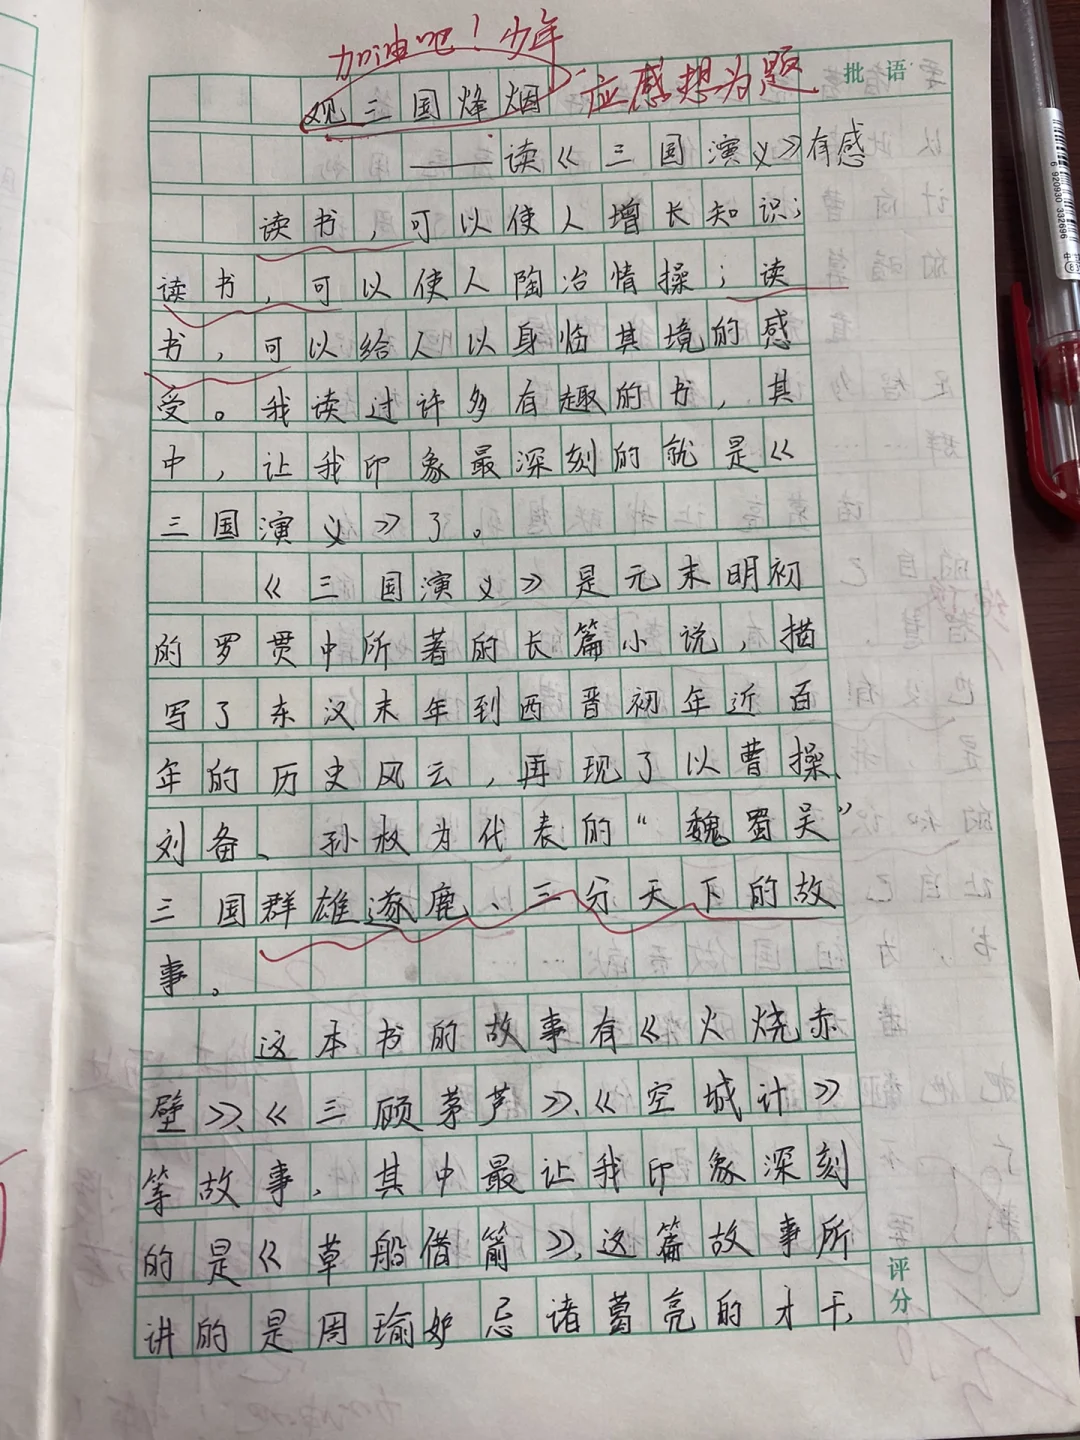 加油吧！少年
观三国烽烟 应感想为题
批语
——读《三国演义》有感
读书，可以使人增长知识；
读书，可以使人陶冶情操；读
书，可以给人以身临其境的感
受。我读过许多有趣的书，其
中，让我印象最深刻的就是《
三国演义》了。
《三国演义》是元末明初
的罗贯中所著的长篇小说，描
写了东汉末年到西晋初年近百
年的历史风云，再现了以曹操、
刘备、孙权为代表的“魏蜀吴”
三国群雄逐鹿、三分天下的故
事。
这本书的故事有《火烧赤
壁》、《三顾茅芦》、《空城计》
等故事，其中最让我印象深刻
的是《草船借箭》，这篇故事所
讲的是周瑜妒忌诸葛亮的才干，
评分
6 920930 332696